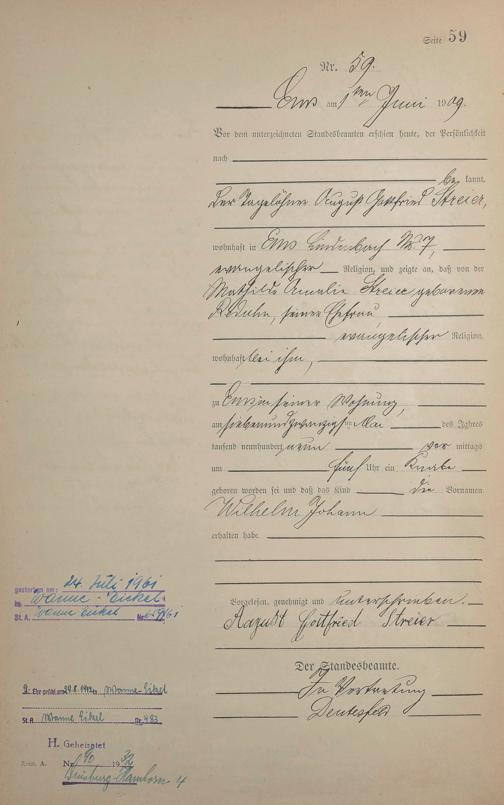 Seite 59
Nr. 59.
Ems am 1ten Juni 1909.
Vor dem unterzeichneten Standesbeamten erschien heute, der Persönlichkeit
nach
be kannt,
Der Tagelöhner August Gottfried Streier,
wohnhaft in Ems Lindenbach No. 7,
evangelischer Religion, und zeigte an, daß von der
Mathilde Amalie Streier, geborenen
seiner Ehefrau,
evangelischer Religion,
wohnhaft bei ihm,
zu Ems in seiner Wohnung,
am siebenundzwanzigsten Mai des Jahres
tausend neunhundert neun vor mittags
um fünf Uhr ein Knabe
geboren worden sei und daß das Kind die Vornamen
Wilhelm Johann
erhalten habe.
Vorgelesen, genehmigt und unterschrieben.
August Gottfried Streier
Der Standesbeamte.
In Vertretung
gestorben am: 24. Juli 1961
in Wanne-Eickel
St. A. Wanne Eickel Nr.
2. Ehe geschl. am in Wanne-Eickel
St. A. Wanne Eickel Nr. 483
H. Geheiratet
Nr. 90 1932
Duisburg-Hamborn 4